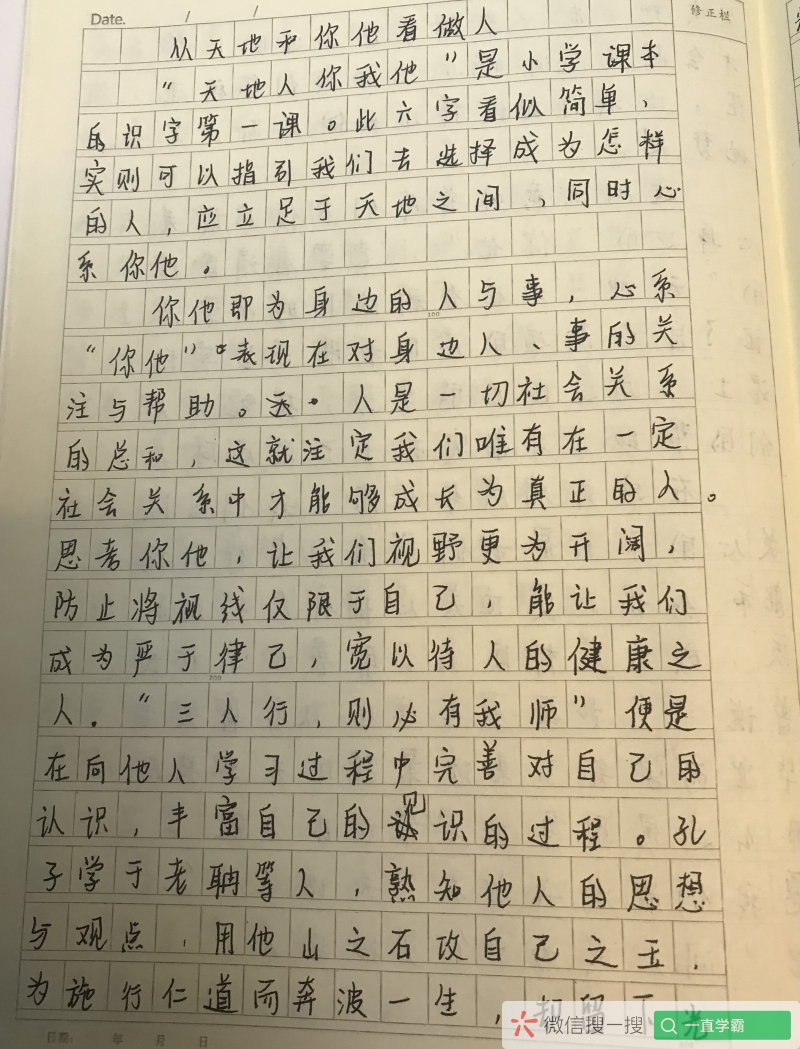 Date. / /
修正栏
从天地和你他看做人
“天地人你我他”是小学课本
的识字第一课。此六字看似简单,
实则可以指引我们去选择成为怎样
的人,应立足于天地之间,同时心
系你他。
你他即为身边的人与事,心系
100
“你他”表现在对身边人、事的关
注与帮助。人是一切社会关系
的总和,这就注定我们唯有在一定
社会关系中才能够成长为真正的人。
思考你他,让我们视野更为开阔,
防止将视线仅限于自己,能让我们
成为严于律己,宽以待人的健康之
200
人.“三人行,则必有我师”便是
在向他人学习过程中完善对自己的
认识,丰富自己的见识的过程。孔
子学于老聃等人,熟知他人的思想
与观点,用他山之石攻自己之玉,
为施行仁道而奔波一生,
日期: 年 月 日
微信搜一搜 一直学霸